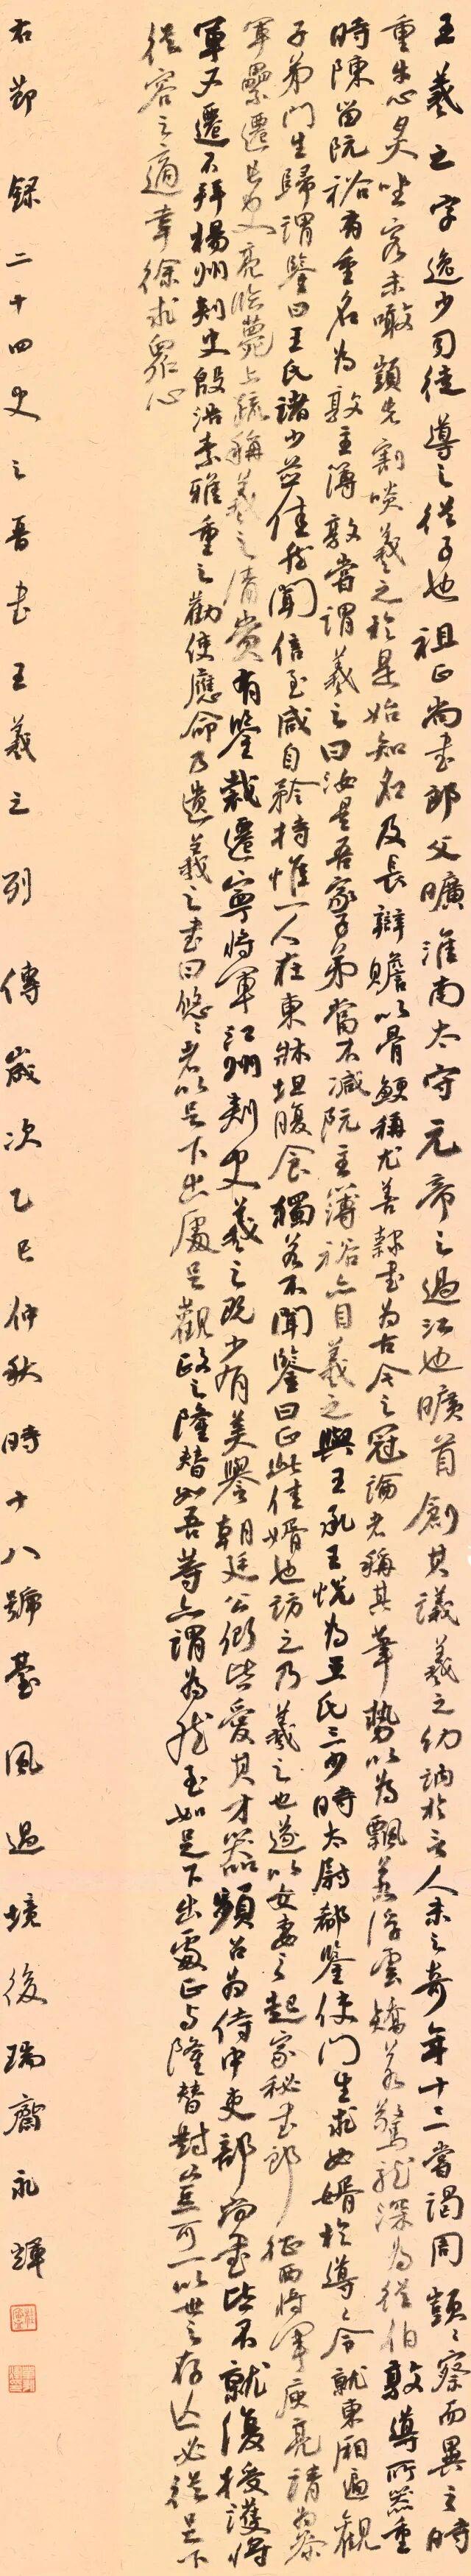 王羲之字逸少司徒導之從子也祖正尚書郎父曠淮南太守元帝之過江也曠首創其議羲之幼訥於言人未之奇年十三嘗謁周顗顗察而異之時
重牛心炙坐客未噉顗先割啖羲之於是始知名及長辯贍以骨鯁稱尤善隸書為古今之冠論者稱其筆勢以為飄若浮雲矯若驚龍深為從伯敦導所器重
時陳留阮裕有重名為敦主簿敦嘗謂羲之曰汝是吾家子弟當不減阮主簿裕亦目羲之與王承王悅為王氏三少時太尉郗鑒使門生求女婿於導導令就東廂遍觀
子弟門生歸謂鑒曰王氏諸少並佳然聞信至咸自矜持惟一人在東牀坦腹食獨若不聞鑒曰正此佳婿也訪之乃羲之也遂以女妻之起家秘書郎征西將軍庾亮請為參
軍累遷長史亮臨薨上疏稱羲之清貴有鑒裁遷寧將軍江州刺史羲之既少有美譽朝廷公卿皆愛其才器頻召為侍中吏部尚書皆不就復授護將
軍又遷不拜楊州刺史殷浩素雅重之勸使應命乃遺羲之書曰悠悠者以足下出處足觀政之隆替如吾等亦謂為然至如足下出處正與隆替對豈可一以世之存亡必從足下
從容之適幸徐求眾心
右節錄二十四史之晉書王羲之列傳歲次乙巳仲秋時十八號臺風過境後瑞齋永輝